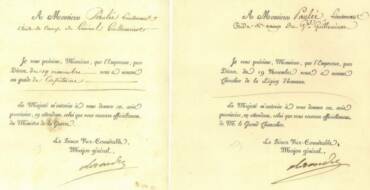 A Monsieur Paulée Lieutenant
Aide de Camp du Général Guilleminot
Je vous préviens, Monsieur, que l'Empereur, par
Décret du 19 novembre vous a nommé
au grade de Capitaine
Sa Majesté m'autorise à vous donner cet avis
provisoire, en attendant, celui que vous recevrez officiellement
du Ministre de la Guerre.
Le Prince Vice-Connétable,
Major général,
Alexandre
A Monsieur Paulée, Lieutenant
Aide de camp du Gal Guilleminot
Je vous préviens, Monsieur, que l'Empereur, par
Décret du 19 Novembre vous a nommé
Chevalier de la Légion d'honneur
Sa Majesté m'autorise à vous donner cet avis
provisoire, en attendant, celui que vous recevrez officiellement
de M. le Grand Chancelier.
Le Prince Vice-Connétable,
Major général,
Alexandre